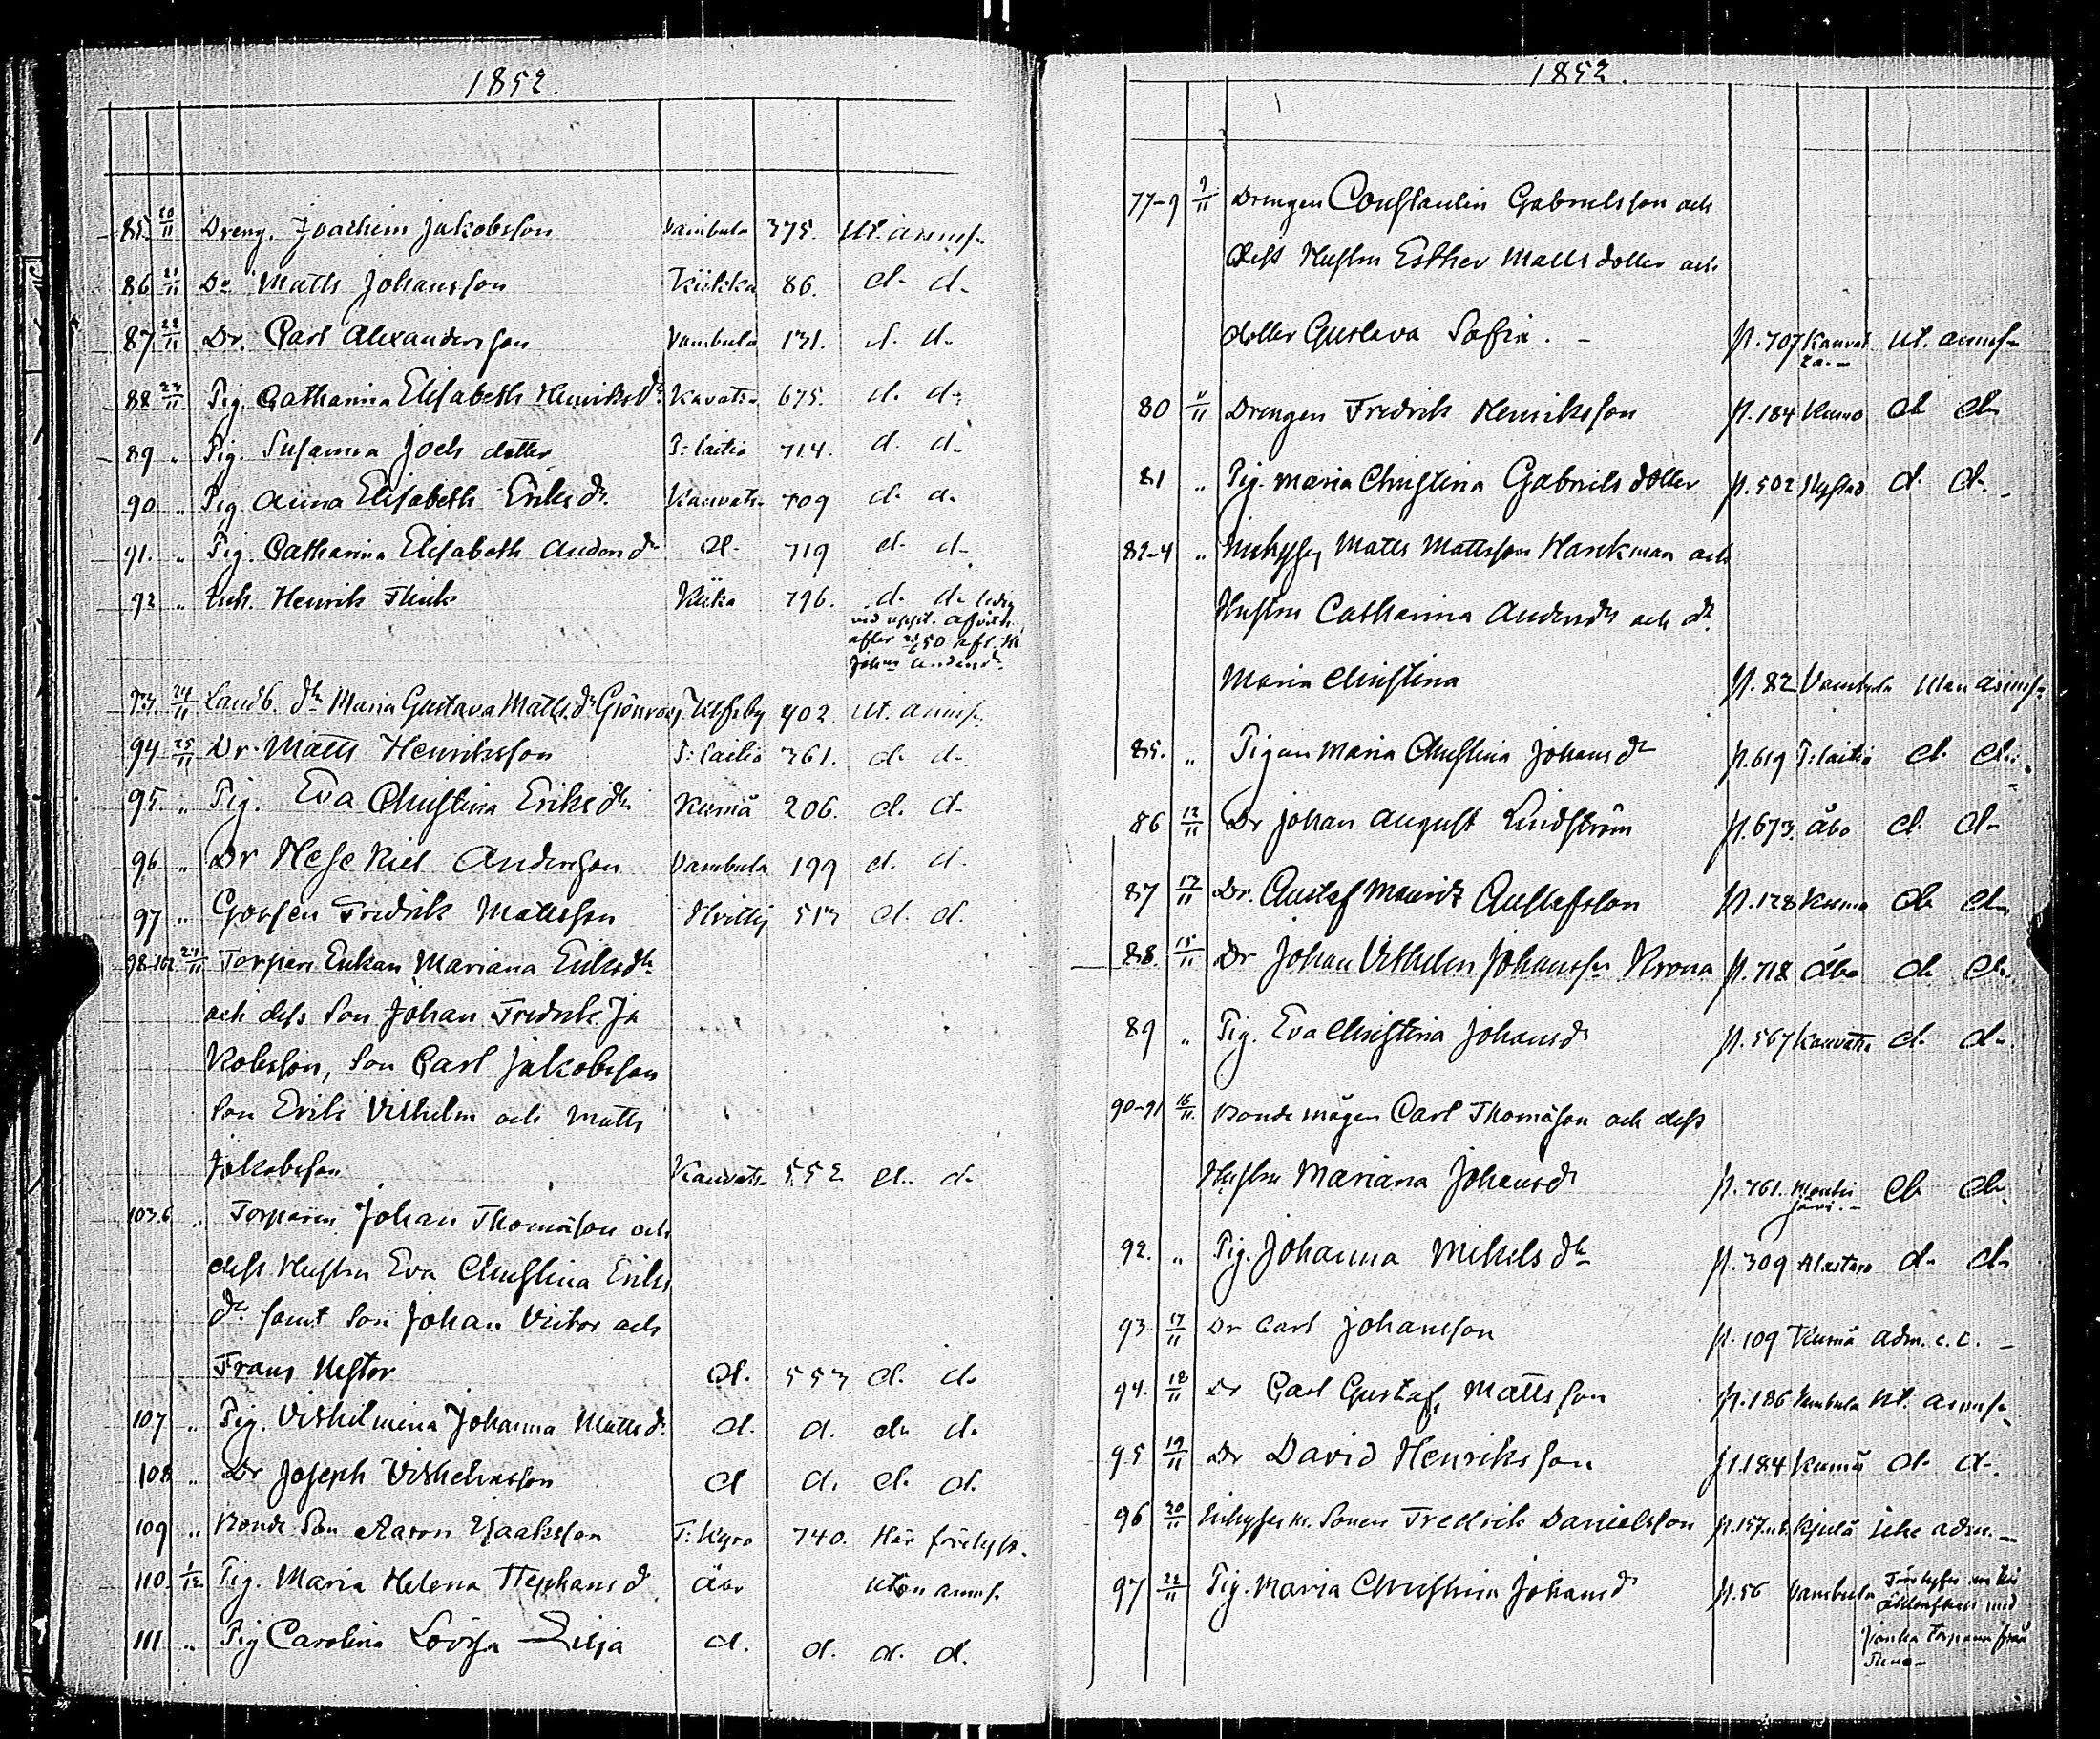 1852.
85. 20/11 Dreng. Joachim Jakobsson Vambula 375. Ut. anmf.
86 21/11 Dr Matts Johansson Kiikka 86. d. d.
87 22/11 Dr. Carl Alexandersson Vambula 131. d. d.
88 23/11 Pig. Catharina Elisabeth Henriksdr. Kavatsa 675. d. d.
89 „ Pig. Susanna Joels dotter P: laitio 714. d. d.
90 „ Pig Anna Elisabeth Eriksdr. Kauvats. 709 d. d.
91. „ Pig. Catharina Elisabeth Andersdr d. 719 d. d.
92 „ Enk. Henrik Flink Kiika 796. d. d. ledig
vid uppt.
after 50 afl.
Joh
93 24/11 Landb. dr Maria Gustava Matts.dr Grönroos Ulfsby 402. Ut. anmf.
94 25/11 Dr. Matts Henriksson P: laitio 361. d. d.
95 „ Pig. Eva Christina Eriksdr Kumå 206. d. d.
96 „ Dr Hesekiel Andersson Vambula 199 d. d.
97 „ Gossen Fredrik Mattsson Hvittis 513 d. d.
98-102 27/11 Torpare Enkan Mariana Eriksdr
och dess Son Johan Fredrik Ja
kobsson, Son Carl Jakobsson
Son Erik Vilhelm och Matts
Jakobsson Kauvats. 552 d. d.
103.6 „ Torparen Johan Thomasson och
dess Hustru Eva Christina Eriks
dr samt Son Johan Victor och
Frans Nestor d. 553. d. d.
107 „ Pig. Vilhelmina Johanna Mattsd. d. d. d. d.
108 „ Dr Joseph Vilhelmsson d d. d. d.
109 „ Bonde Son Aaron Isaaksson T: Kyro 740. Här förelyst.
110. 1/12 Pig. Maria Helena Stephansd Åbo Utan anmf.
111 „ Pig Carolina Lovisa Lilja d. d. d. d.
1852.
77-9 9/11 Drengen Constantin Gabrielsson och
dess Hustru Esther Matts dotter och
dotter Gustava Sofia. - p. 707 Kauvat Ut. anmf.
za.
80 11/11 Drengen Fredrik Henriksson p. 184 Kumo d. d.
81 „ Pig. Maria Christina Gabriels dotter p. 502 Nystad d. d.
82-4 „ Inhyses Matts Mattsson Harckman och
Hustru Catharina Andersdr och dr.
Maria Christina p. 82 Vambula Utan anmf.
85. „ Pigan Maria Christina Johansdr p. 619 P: laitio d. d.
86 12/11 Dr Johan August Lindström p. 673. Åbo d. d.
87 13/11 Dr. Gustaf Mauritz Gustafsson p. 128 Kumo d. d.
88. 15/11 Dr Johan Vilhelm Johansson Krona p. 718 Åbo d. d.
89 „ Pig. Eva Christina Johansdr p. 567 Kauvatsa d. d.
90-91 16/11. Bonde mågen Carl Thomasson och dess
Hustru Mariana Johansdr p. 761. Mouhi d. d.
järvi.
92. „ Pig. Johanna Mikelsdr p. 309 Alastaro d. d.
93. 17/11 Dr Carl Johansson p. 109 Kumå adm. c.c. -
94. 18/11 Dr Carl Gustaf Mattsson p. 186 Vambula Ut. anmf.
95 19/11 Dr David Henriksson p. 184 Kumå d. d.
96 20/11 Inhyses m. Sonen Fredrik Danielsson p. 157 Kjulå icke adm. -
97 22/11 Pig. Maria Christina Johansdr p. 56 Vambula
med
Torparen från